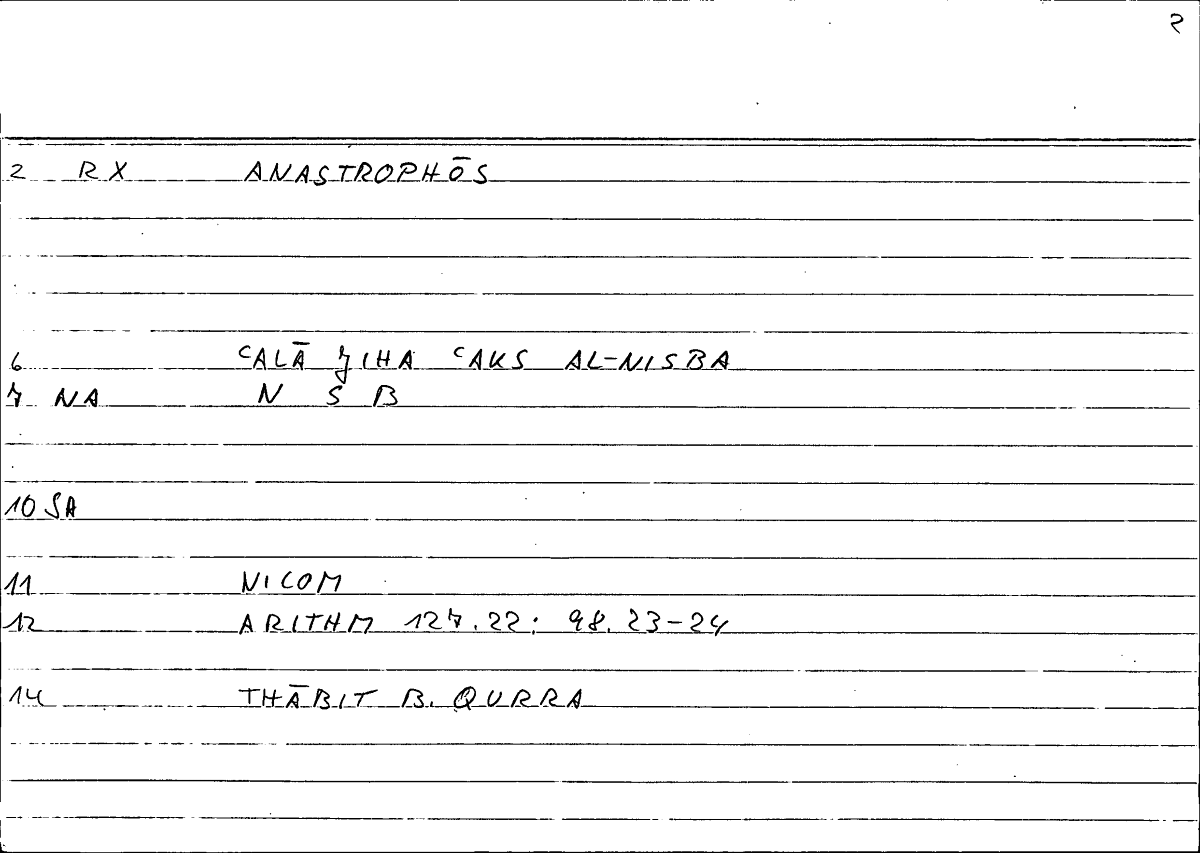 2
2 RX ANASTROPHŌS
6 ᶜALĀ ǮIHA ᶜAKS AL-NISBA
7 NA N S B
10 SA
11 NICOM
12 ARITHM 127.22: 98.23-24
14 THĀBIT B. QURRA